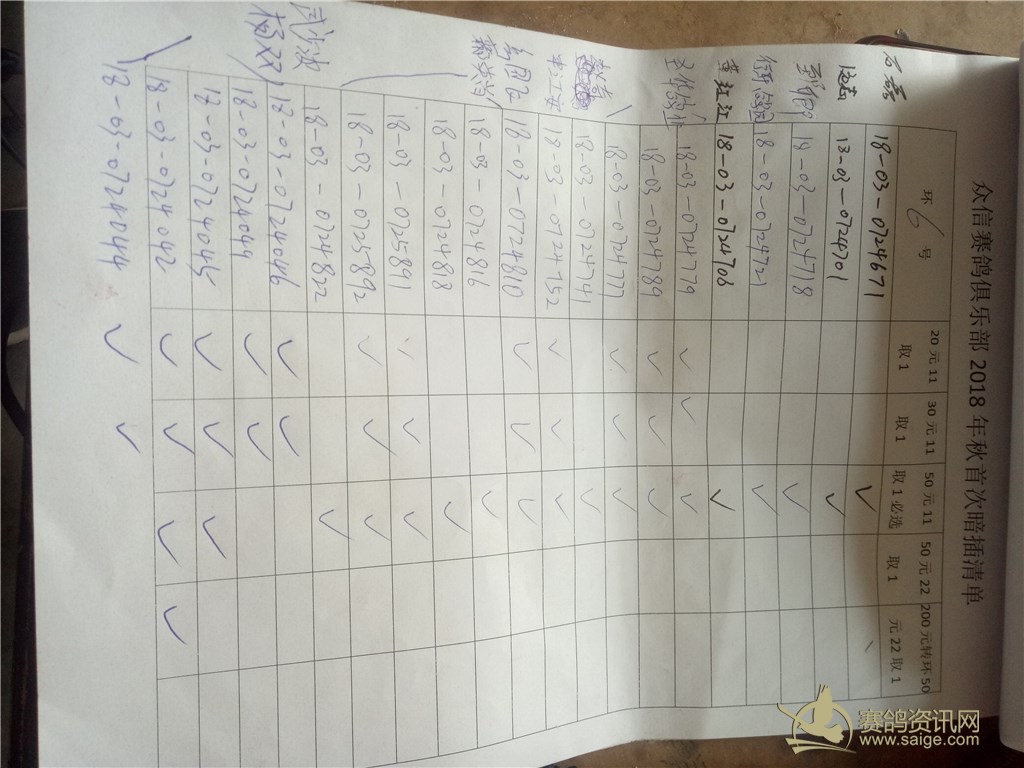 众信赛鸽俱乐部2018年秋首次暗插清单
环号 20元11取1 30元11取1 50元11取1必选 50元22取1 200元转环50元22取1
18-03-0724671 ✓
18-03-0724701 ✓
18-03-0724718 ✓
18-03-0724721 ✓
董红江 18-03-0724708 ✓
18-03-0724779 ✓ ✓ ✓
18-03-0724789 ✓ ✓ ✓
18-03-0724777 ✓ ✓ ✓
18-03-0724741 ✓
18-03-0724752 ✓ ✓ ✓
18-03-0724810 ✓ ✓ ✓
18-03-0724816 ✓
18-03-072488 ✓
18-03-0725891 ✓ ✓ ✓
18-03-0725892 ✓ ✓ ✓
18-03-0724822 ✓
18-03-0724046 ✓ ✓
18-03-0724049 ✓ ✓
18-03-0724045 ✓ ✓ ✓
18-03-0724042 ✓ ✓ ✓ ✓
18-03-0724044 ✓ ✓
赛鸽资讯网
www.saige.com